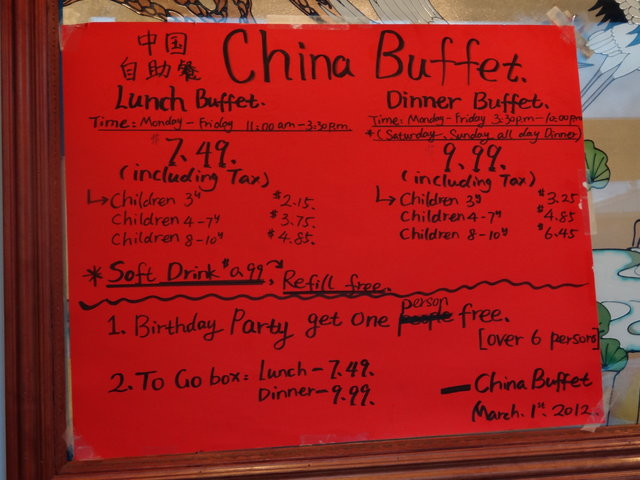 中国
自助餐
China Buffet.
Lunch Buffet.
Time: Monday - Friday 11:00 am - 3:30 pm
$7.49.
(including Tax)
Children 3y $2.15.
Children 4-7y $3.75.
Children 8-10y $4.85.
Dinner Buffet.
Time: Monday - Friday 3:30 pm - 10:00 pm
*(Saturday. Sunday all day Dinner)
9.99.
(including Tax)
Children 3y $3.25
Children 4-7y $4.85
Children 8-10y $6.45
* Soft Drink $0.99, Refill free.
1. Birthday Party get one person free.
[over 6 person]
2. To Go box: Lunch - 7.49.
Dinner - 9.99.
— China Buffet
March. 1st. 2012.